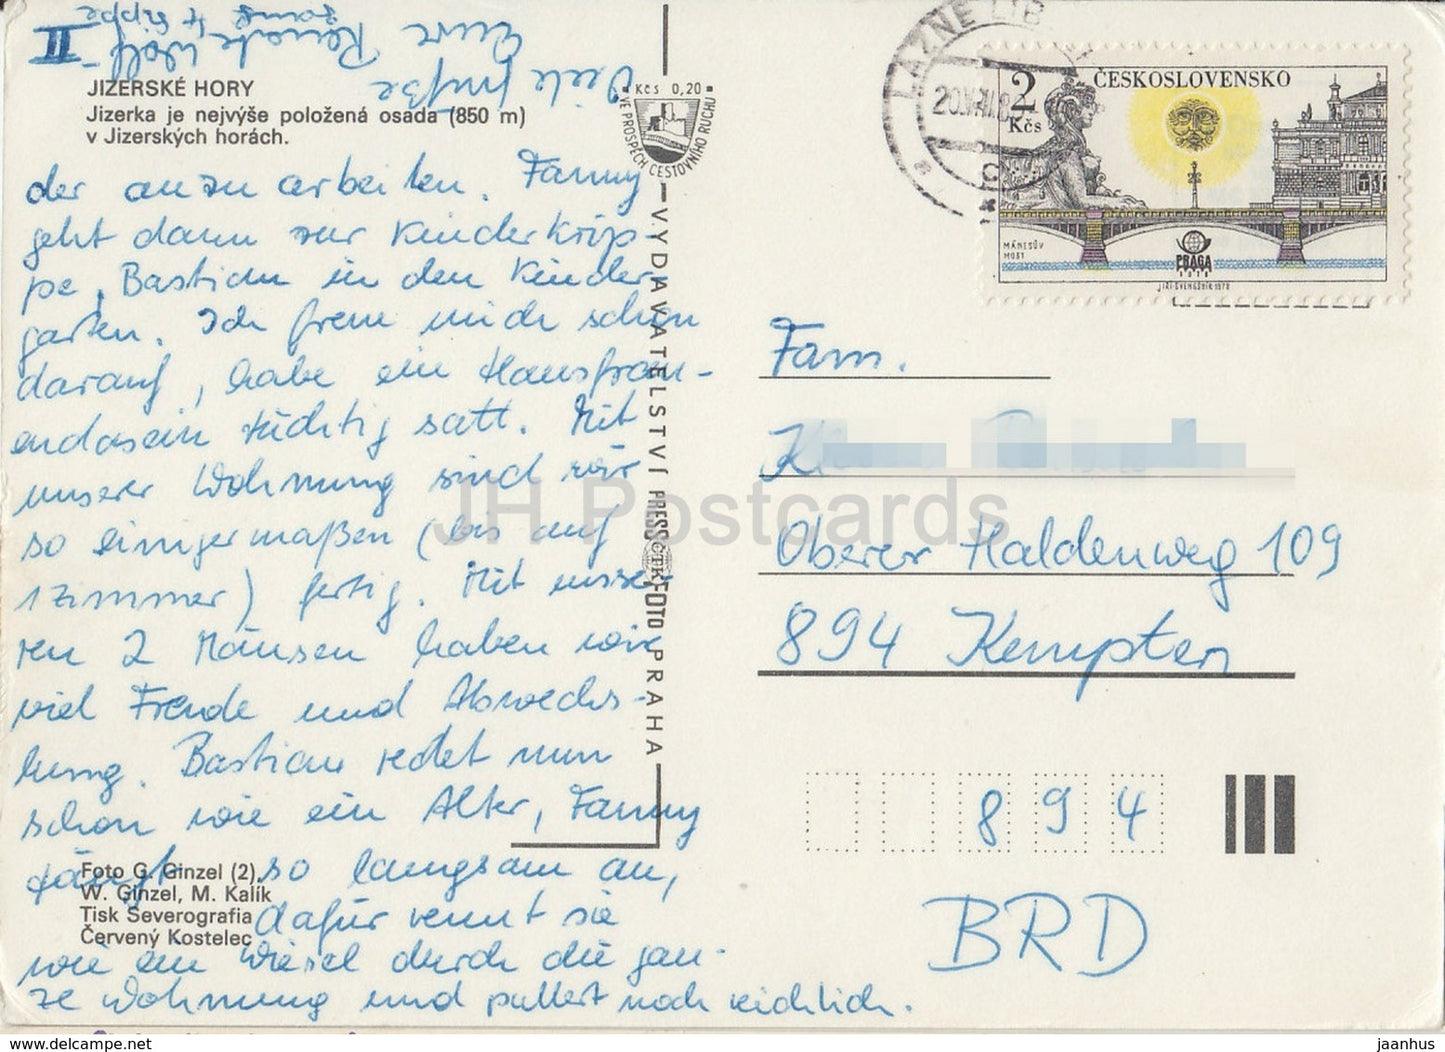 II
Viele Grüße
Eure Renate Wolf
JIZERSKÉ HORY
Jizerka je nejvýše položená osada (850 m)
v Jizerských horách.
der anzu arbeiten. Fanny
geht dann zur Kinderkrip-
pe, Bastian in den Kinder-
garten. Ich freue mich schon
darauf, habe ein Hausfrau-
endasein tüchtig satt. Mit
unserer Wohnung sind wir
so einigermaßen (bis auf
1 Zimmer) fertig. Mit unse-
ren 2 Mäusen haben wir
viel Freude und Abwechs-
lung. Bastian redet nun
schon wie ein Alter, Fanny
fängt so langsam an,
dafür rennt sie
wie ein Wiesel durch die gan-
ze Wohnung und pullert noch reichlich.
Foto G. Ginzel (2),
W. Ginzel, M. Kalík
Tisk Severografia
Červený Kostelec
Kčs 0,20
VE PROSPĚCH CESTOVNÍHO RUCHU
VYDAVATELSTVÍ PRESSFOTO PRAHA
ČTK
LÁZNĚ LIB
2 Kčs
ČESKOSLOVENSKO
MÁNESŮV
MOST
PRAGA
1978
JIŘÍ ŠVENGSBÍR 1978
Fam.
Oberer Haldenweg 109
894 Kempten
8 9 4
BRD
JH Postcards
www.delcampe.net
jaanhus